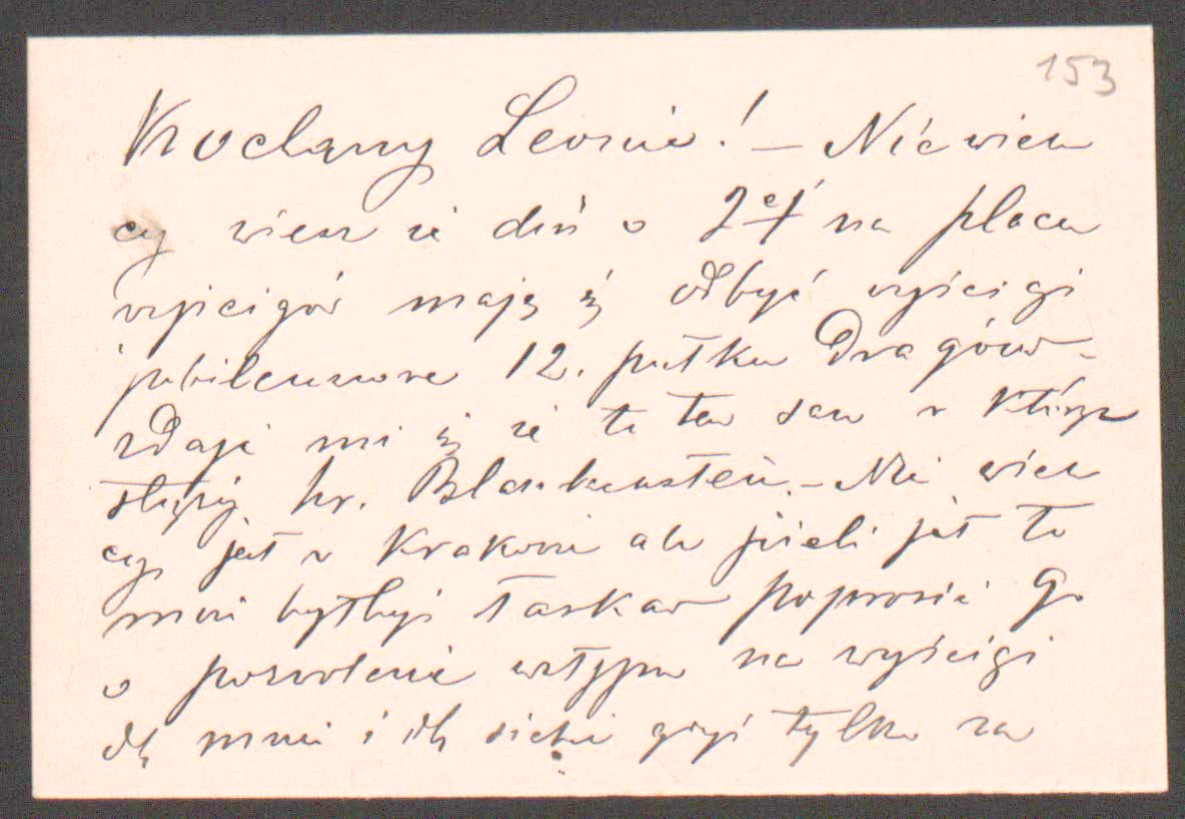 153
Kochany Leonie! – Nie wiem
czy wiesz że dziś o 2ej na placu
wyścigów mają się odbyć wyścigi
jubileuszowe 12. pułku Dragonów –
zdaje mi się że to ten sam w którym
służy hr. Blankenstein. – Nie wiem
czy jest w Krakowie ale jeżeli jest to
może byłbyś łaskaw poprosić Go
o pozwolenie wstępu na wyścigi
dla mnie i dla siebie gdyż tylko za